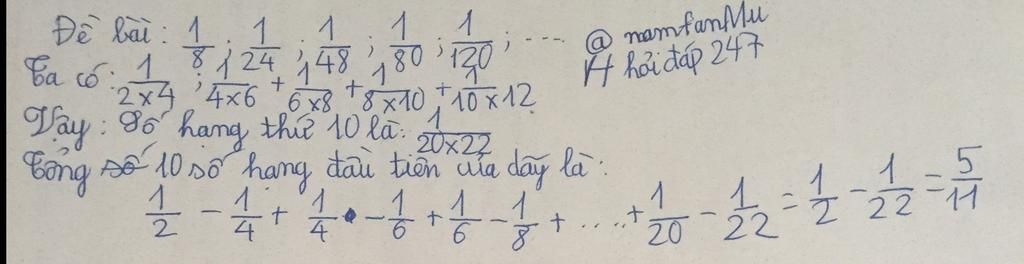 Đề bài: 1/8; 1/24; 1/48; 1/80; 1/120; .... @ namfanMu
Ta có: 1/2×4; 1/4×6 + 1/6×8 + 1/8×10 + 1/10×12 H hỏi đáp 247
Vậy: Số hạng thứ 10 là: 1/20×22
Tổng số 10 số hạng đầu tiên của dãy là:
1/2 - 1/4 + 1/4 - 1/6 + 1/6 - 1/8 + ..... + 1/20 - 1/22 = 1/2 - 1/22 = 5/11